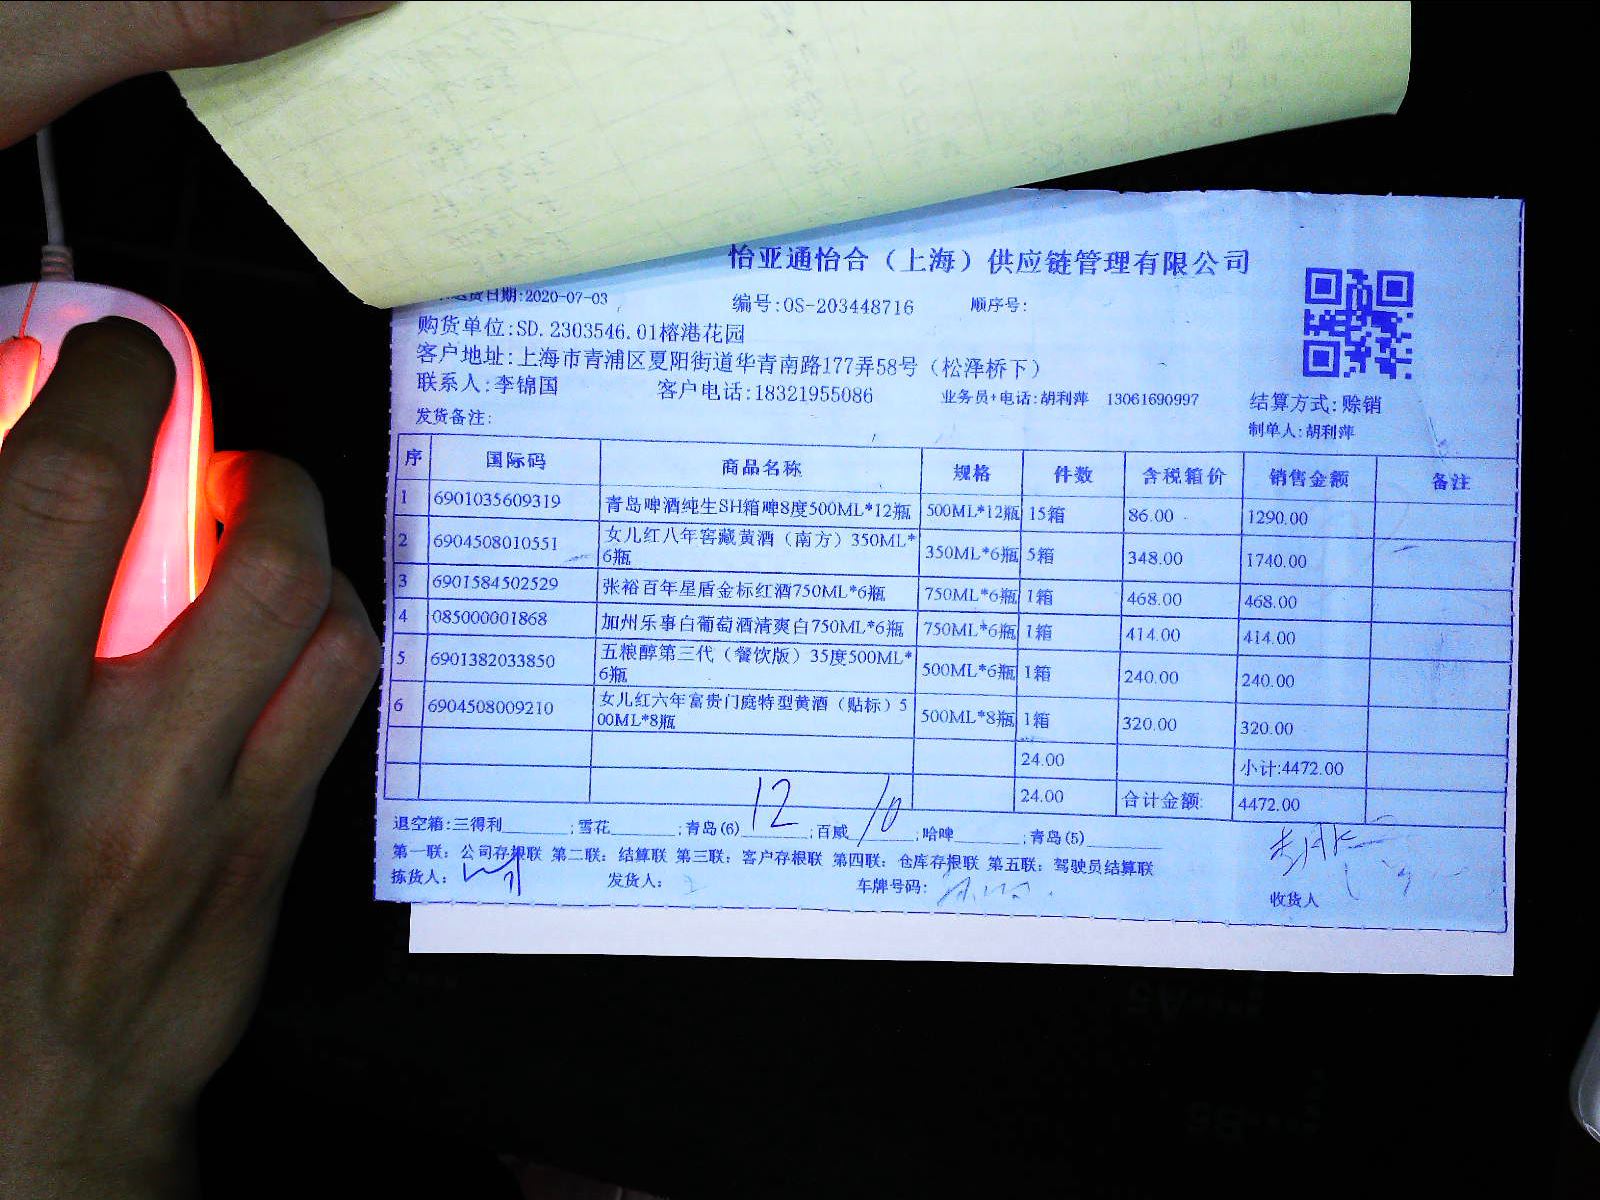 怡亚通怡合（上海）供应链管理有限公司
退货日期:2020-07-03 编号:OS-203448716 顺序号:
购货单位:SD.2303546.01榕港花园
客户地址:上海市青浦区夏阳街道华青南路177弄58号（松泽桥下）
联系人:李锦国 客户电话:18321955086 业务员+电话:胡利萍 13061690997 结算方式:赊销
发货备注: 制单人:胡利萍
序 国际码 商品名称 规格 件数 含税箱价 销售金额 备注
1 6901035609319 青岛啤酒纯生SH箱啤8度500ML*12瓶 500ML*12瓶 15箱 86.00 1290.00
2 6904508010551 女儿红八年窖藏黄酒（南方）350ML*6瓶 350ML*6瓶 5箱 348.00 1740.00
3 6901584502529 张裕百年星盾金标红酒750ML*6瓶 750ML*6瓶 1箱 468.00 468.00
4 085000001868 加州乐事白葡萄酒清爽白750ML*6瓶 750ML*6瓶 1箱 414.00 414.00
5 6901382033850 五粮醇第三代（餐饮版）35度500ML*6瓶 500ML*6瓶 1箱 240.00 240.00
6 6904508009210 女儿红六年富贵门庭特型黄酒（贴标）500ML*8瓶 500ML*8瓶 1箱 320.00 320.00
24.00 小计:4472.00
24.00 合计金额: 4472.00
退空箱:三得利______;雪花______;青岛(6) 12 ;百威 10 ;哈啤______;青岛(5)______
第一联：公司存根联 第二联：结算联 第三联：客户存根联 第四联：仓库存根联 第五联：驾驶员结算联
拣货人： 发货人： 车牌号码： 收货人